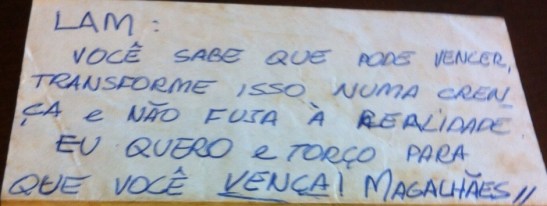 LAM:
VOCÊ SABE QUE PODE VENCER,
TRANSFORME ISSO NUMA CREN
ÇA e NÃO FUJA À REALIDADE
EU QUERO e TORÇO PARA
QUE VOCÊ VENÇA! MAGALHÃES,,